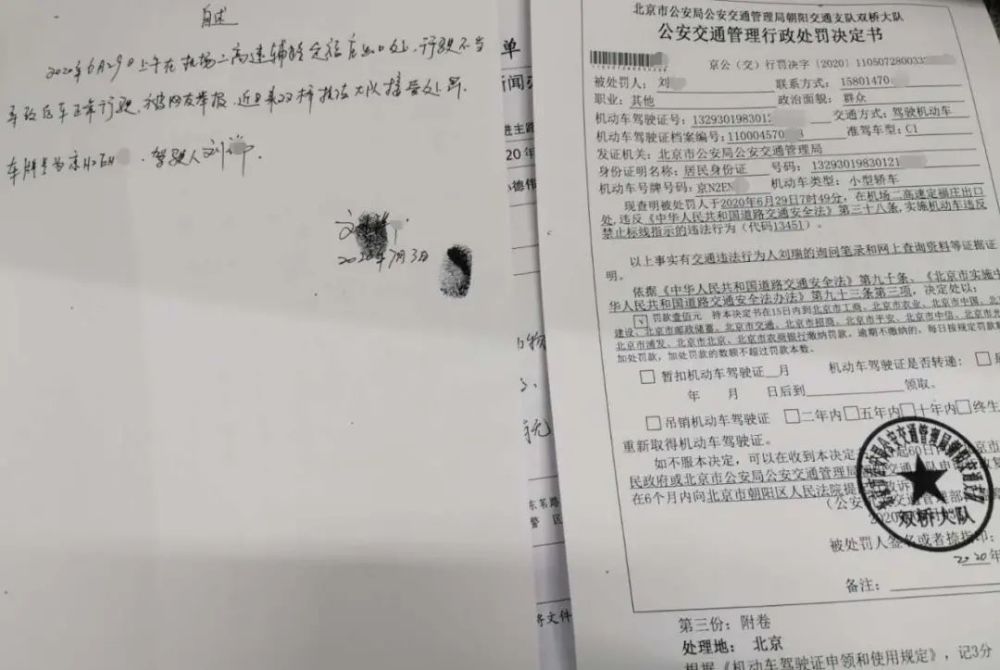 自述
2020年6月29日上午在机场二高速辅路定福庄出口处,行驶不当
导致后车正常行驶,被网友举报,近日来双桥执法大队接受处罚.
车牌号为京N2EN
驾驶人刘
2020年7月3日
单
新闻
进主路
20年
小德伟
物
抚
东苇路
警 区
将文件
北京市公安局公安交通管理局朝阳交通支队双桥大队
公安交通管理行政处罚决定书
京公(交)行罚决字〔2020〕110507280033
被处罚人:刘 联系方式:15801470
职业:其他 政治面貌:群众
机动车驾驶证号:1329301983012 交通方式:驾驶机动车
机动车驾驶证档案编号:110004570 准驾车型:C1
发证机关:北京市公安局公安交通管理局
身份证明名称:居民身份证 号码:13293019830121
机动车号牌号码:京N2EN 机动车类型:小型轿车
现查明被处罚人于2020年6月29日7时49分,在机场二高速定福庄出口
处,违反《中华人民共和国道路交通安全法》第三十八条,实施机动车违反
禁止标线指示的违法行为(代码13451)。
以上事实有交通违法行为人刘瑞的询问笔录和网上查询资料等证据证
明。
依据《中华人民共和国道路交通安全法》第九十条、《北京市实施中
华人民共和国道路交通安全法办法》第九十三条第三项,决定处以:
罚款壹佰元 持本决定书在15日内到北京市工商、北京市农业、北京市中国、北
建设、北京市邮政储蓄、北京市交通、北京市招商、北京市平安、北京市中信、北京市光
北京市浦发、北京市北京、北京市农商银行缴纳罚款。逾期不缴纳的,每日按规定罚款
加处罚款,加处罚款的数额不超过罚款本数。
暂扣机动车驾驶证 月 机动车驾驶证是否转递:
年 月 日后到 领取。
吊销机动车驾驶证 二年内 五年内 十年内 终生
重新取得机动车驾驶证。
如不服本决定,可以在收到本决定 起60日内
民政府或北京市公安局公安交通管理局
在6个月内向北京市朝阳区人民法院提
双桥大队
被处罚人签名或者捺指印:
2020年
备注:
第三份:附卷
处理地: 北京
根据《机动车驾驶证申领和使用规定》,记3分